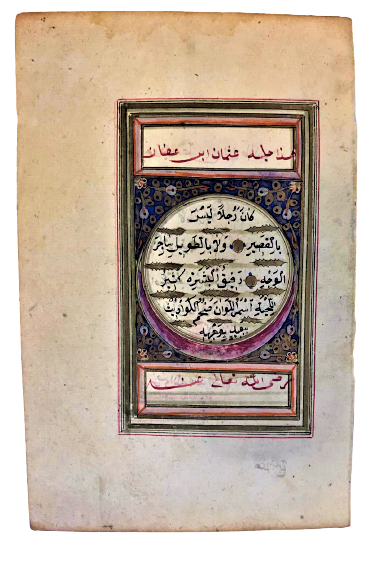 هذا حليه عثمان ابن عفان
كَانَ رَجُلاً لَيْسَتْ
بِالقَصِيرِ وَلَا بِالطَّوِيلِ
الوَجْهِ رَقِيقِ البَشَرَه كَثِيرُ
اللحية اَسْمَرُ اللَّوان ضَخْمُ
بعيد
رضى الله تعالى عنه